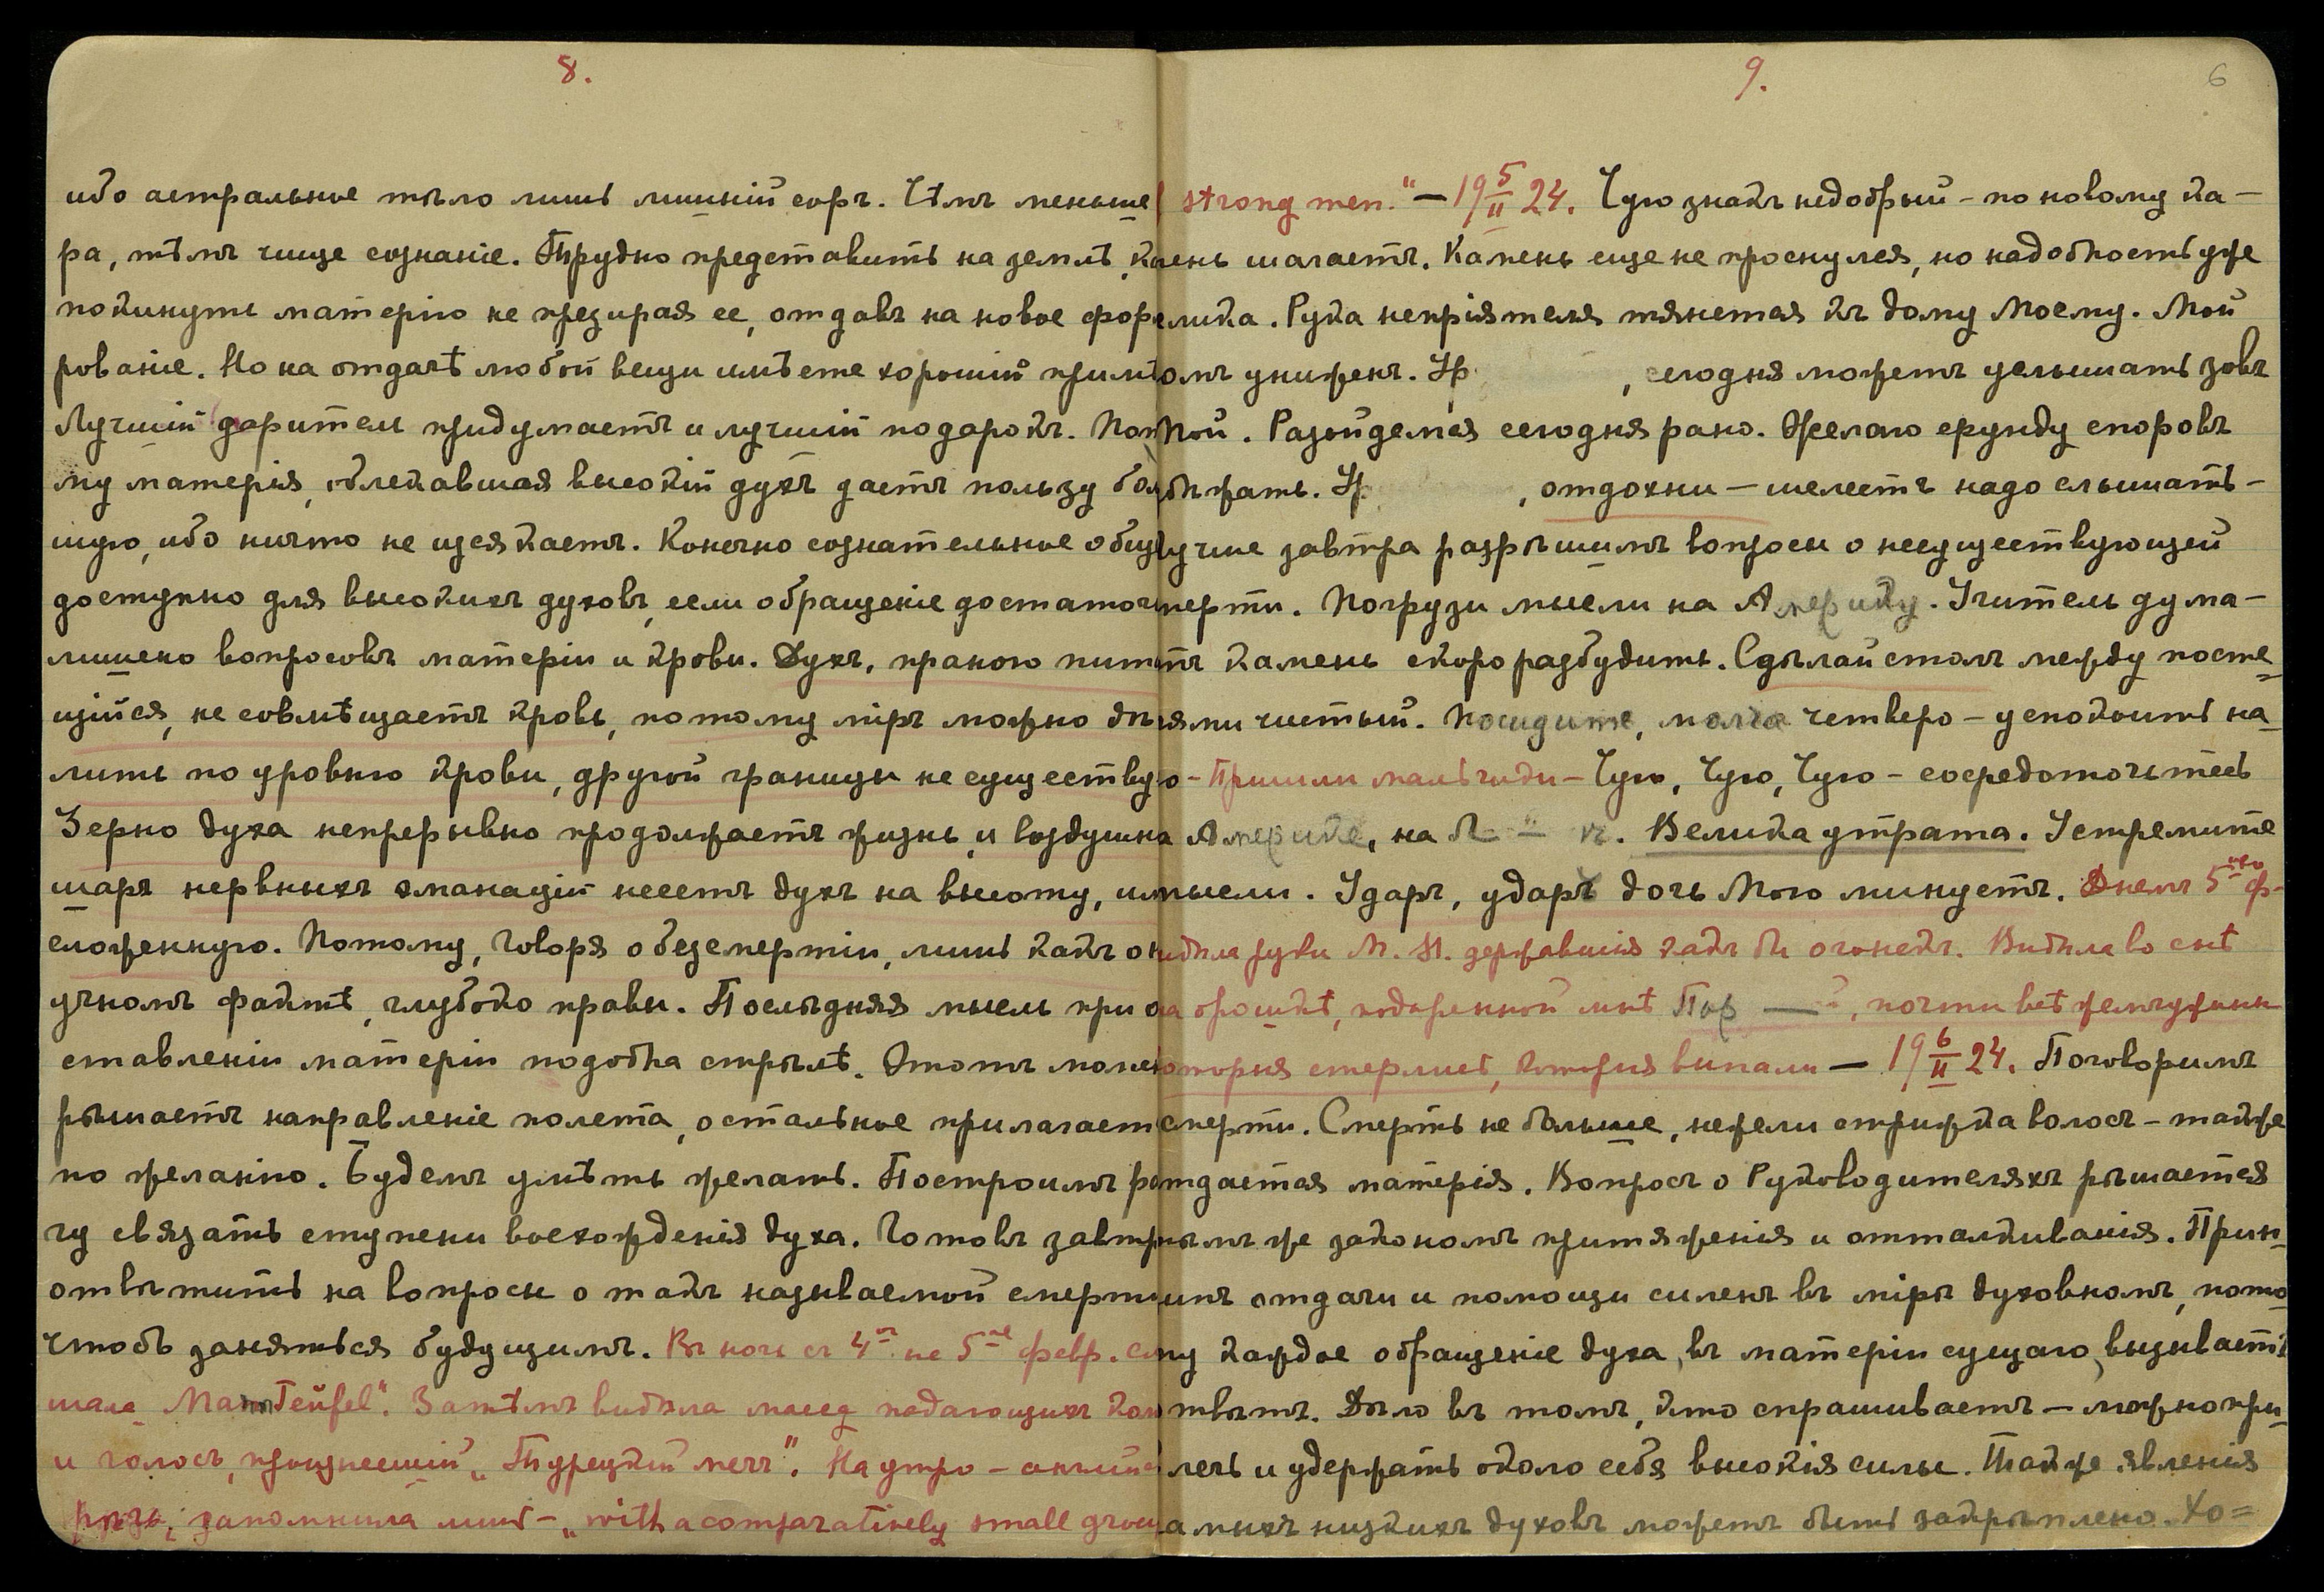 8.
ибо астральное тѣло лишь лишній соръ. Чѣмъ меньше
ра, тѣмъ чище сознаніе. Трудно представить на землѣ, к
покинуть матерію не презирая ее, отдавъ на новое фор
рованіе. Но на отдачѣ любой вещи имѣете хорошій примѣ
Лучшій даритель придумаетъ и лучшій подарокъ. Пот
му матерія, облекавшая высокій духъ даетъ пользу бо
шую, ибо ничто не изсякаетъ. Конечно сознательное общ
доступно для высокихъ духовъ, если обращеніе достаточ
лишено вопросовъ матеріи и крови. Духъ, праною пит
щійся, не совмѣщаетъ кровь, потому міръ можно дѣ
лить по уровню крови, другой границы не существу
Зерно духа непрерывно продолжаетъ жизнь, и воздушн
шаръ нервныхъ эманацій несетъ духъ на высоту, им
сложенную. Потому, говоря о безсмертіи, лишь какъ о н
учномъ фактѣ, глубоко правы. Послѣдняя мысль при о
ставленіи матеріи подобна стрѣлѣ. Этотъ момен
рѣшаетъ направленіе полета, остальное прилагает
по желанію. Будемъ умѣть желать. Построимъ
чу связать ступени восхожденія духа. Готовъ завтр
отвѣтить на вопросы о такъ называемой смерт
чтобъ заняться будущимъ. Въ ночь съ 4го на 5ое февр. с
шала „Teufel“. Затѣмъ видѣла падающихъ
и голосъ, произнесшій „Турецкій мечъ“. На утро –
рѣчь, запомнила лишь – „with a comparatively small grou
9.
6
strong men.“ – 19 5/II 24. Чую знакъ недобрый – по новому ка-
мень шагаетъ. Камень еще не проснулся, но надобность уже
лика. Рука непріятеля тянется къ дому Моему. Мой
омъ униженъ. Ур , сегодня можетъ услышать зовъ
Мой. Разойдемся сегодня рано. Желаю ерунду споровъ
бѣжать. Ур , отдохни – шелестъ надо слышать –
лучше завтра разрѣшимъ вопросы о несуществующей
смерти. Погрузи мысли на Америку. Учитель дума-
етъ камень скоро разбудить. Сдѣлай столъ между посте-
лями чистый. Посидите, молча четверо – успокоить на-
до – Пришли мальчики – Чую, Чую, Чую – сосредоточьтесь
на Америке, на . Велика утрата. Устремите
мысли. Ударъ, ударъ дочь Мою минуетъ. Днемъ 5го ф-
видѣла руки М. М. державшія какъ бы огонекъ. Видѣла во снѣ
на брошкѣ, подаренной мнѣ Пор , почти всѣ жемчужины
стерлись, выпали – 19 6/II 24. Поговоримъ
смерти. Смерть не больше, нежели стрижка волосъ – также
отдается матерія. Вопросъ о Руководителяхъ рѣшается
тѣмъ же закономъ притяженія и отталкиванія. Прин-
ципъ отдачи и помощи силенъ въ мірѣ духовномъ, пото-
му каждое обращеніе духа, въ матеріи сущаго, вызываетъ
отвѣтъ. Дѣло въ томъ, кто спрашиваетъ – можно при-
влечь и удержать около себя высокія силы. Также явленія
самыхъ низкихъ духовъ можетъ быть закрѣплено. Хо=